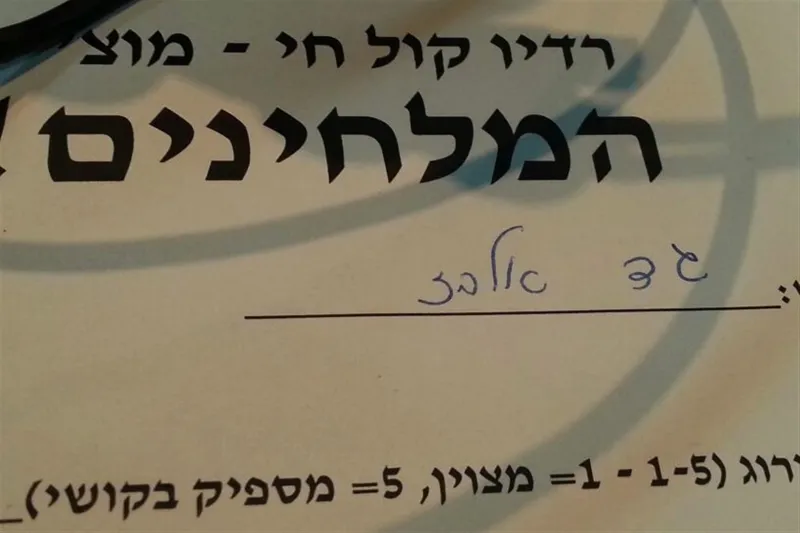 רדיו קול חי - מוצ
המלחינים
גד אלבז
ירוג (1-5 - 1= מצוין, 5= מספיק בקושי)